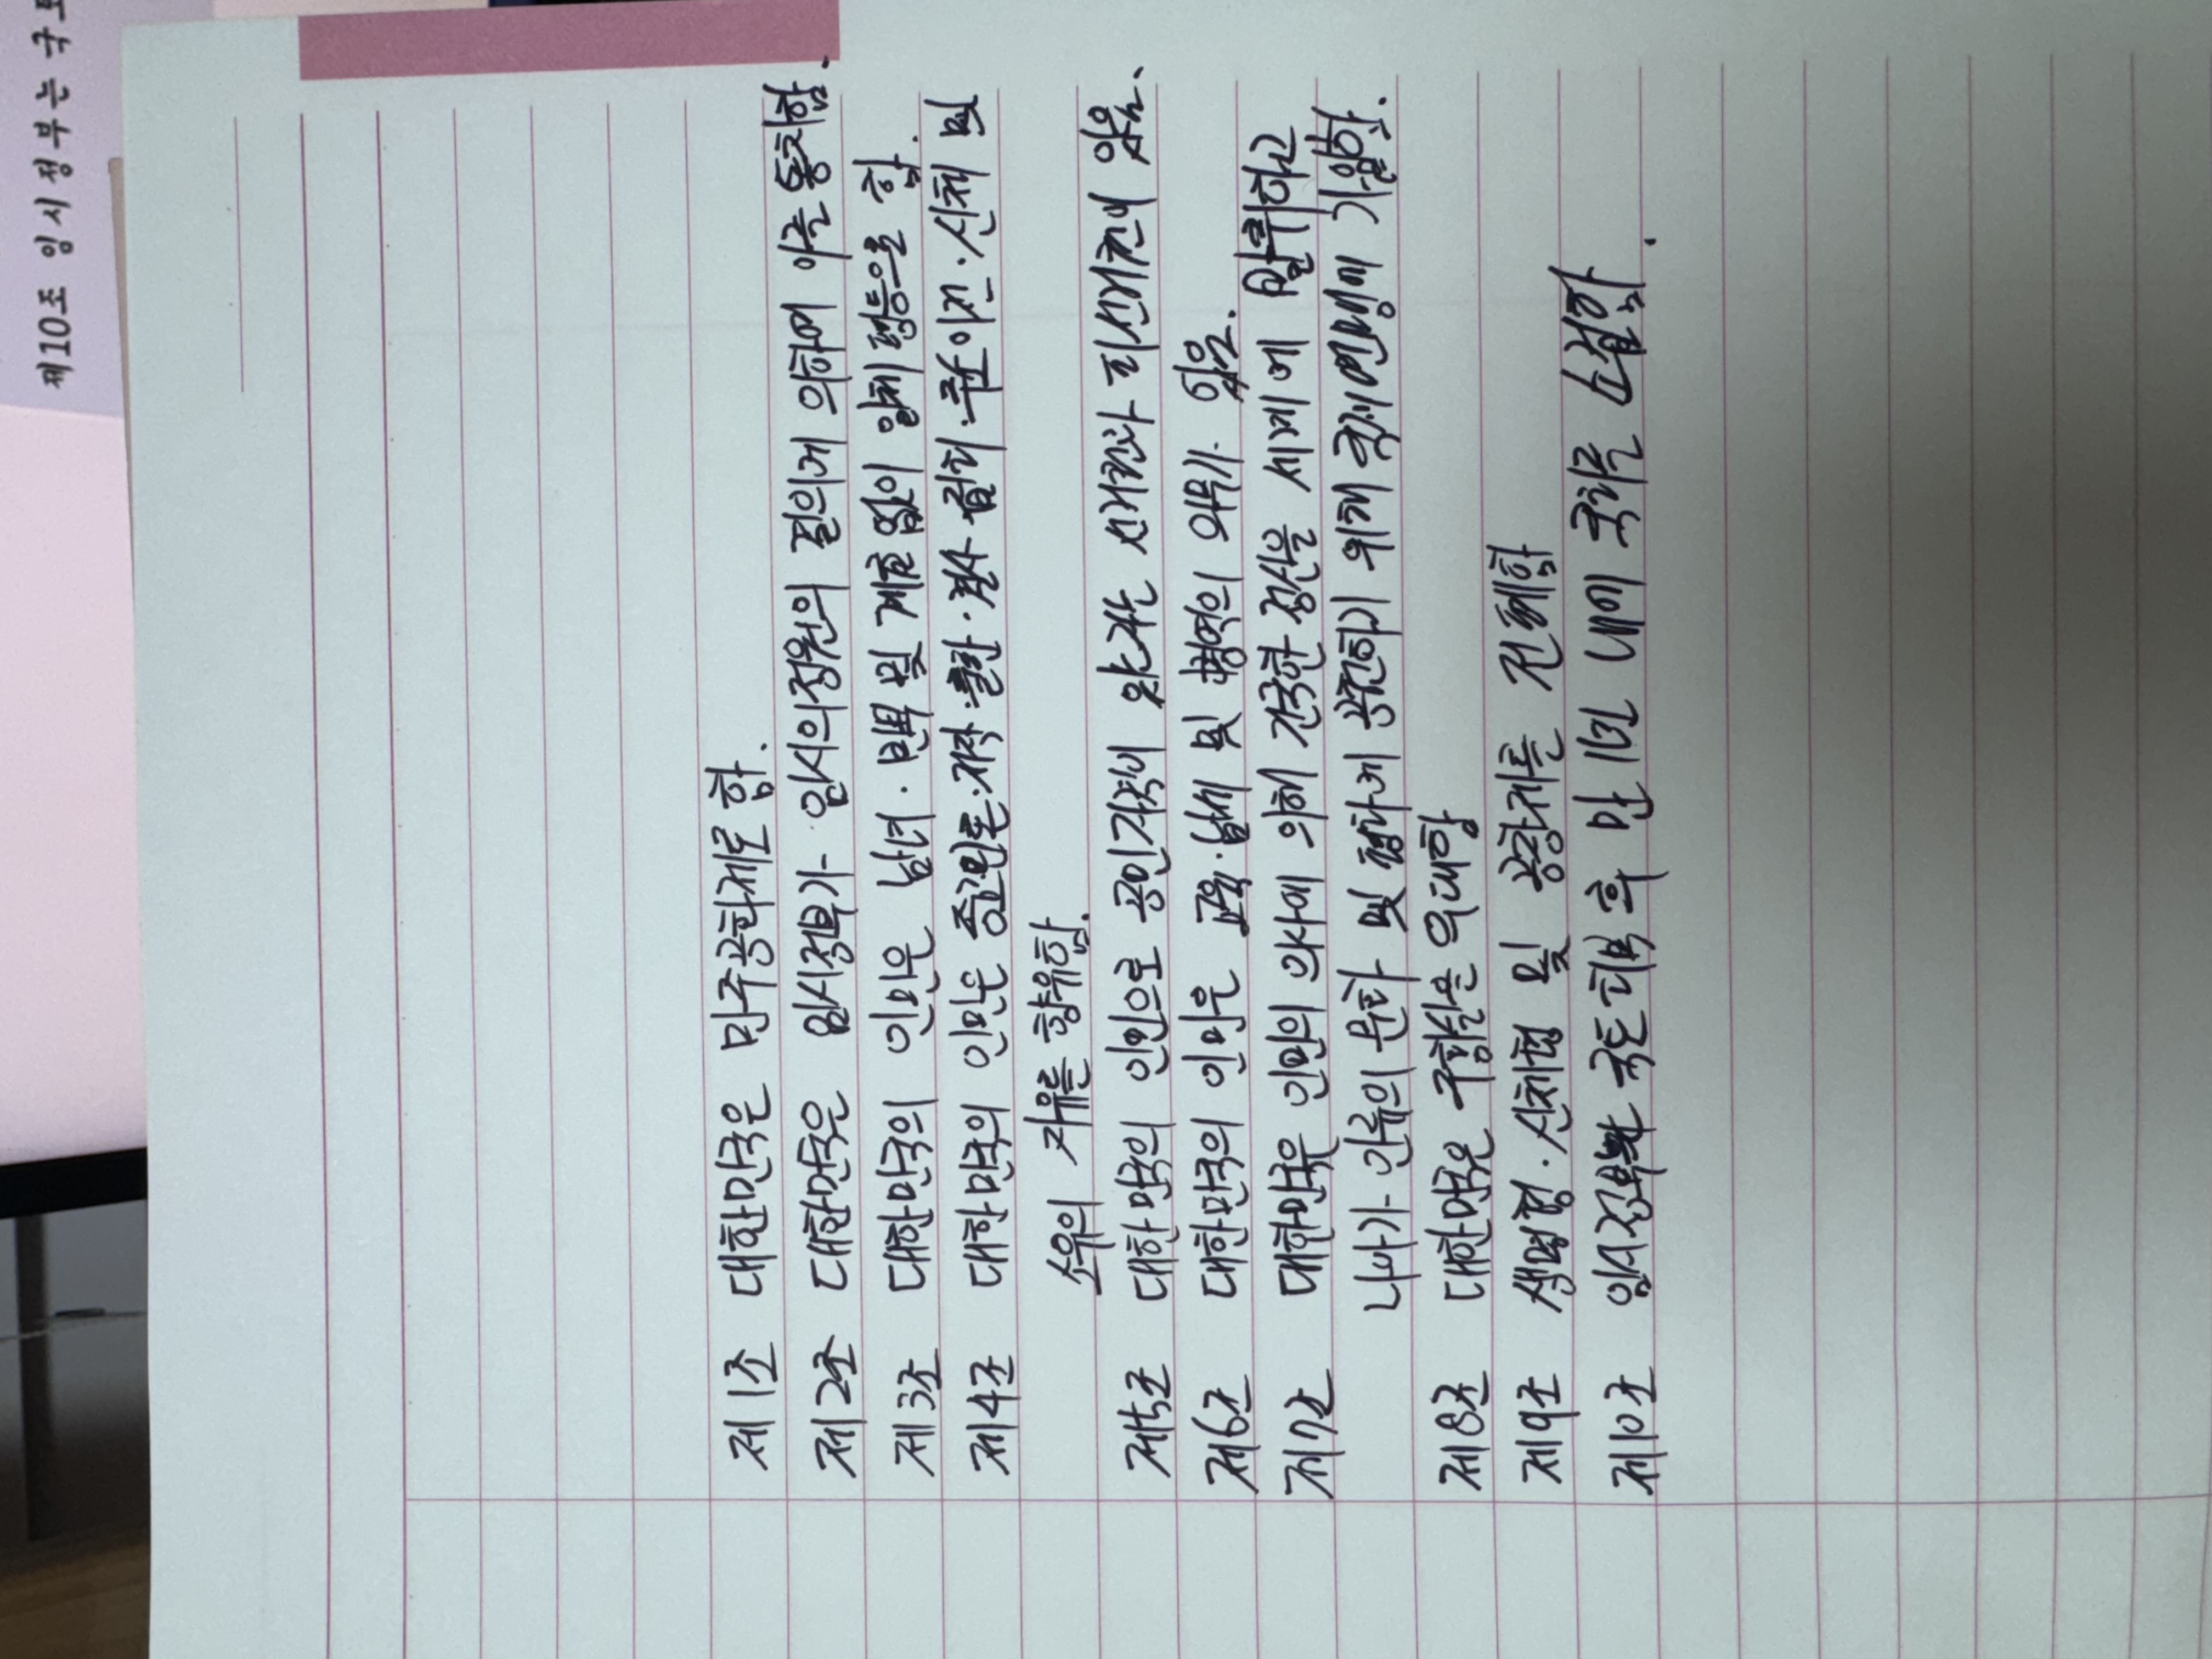 제10조 임시정부는 국토
제1조 대한민국은 민주공화제로 함.
제2조 대한민국은 임시정부가 임시의정원의 결의게 의하여 이를 통치함.
제3조 대한민국의 인민은 남녀·빈복 및 계급 없이 일체 평등으로 함.
제4조 대한민국의 인민은 종교·언론·저작·출판·결사·집회·주소이전·신체 및
소유의 자유를 향유함.
제5조 대한민국의 인민으로 공민자격이 있는 선거권과 피선거권이 있음.
제6조 대한민국의 인민은 교육·납세 및 병역의 의무가 있음.
제7조 대한민국은 인민의 의사에 의해 건국한 정신을 세계에 발휘하고
나아가 인류의 문화 및 평화에 공헌하기 위해 국제연맹에 가입함.
제8조 대한민국은 구황실을 우대함
제9조 생명형·신체형 및 공창제를 전폐함
제10조 임시정부는 국토 회복 후 만 1년 내에 국회를 소집함.